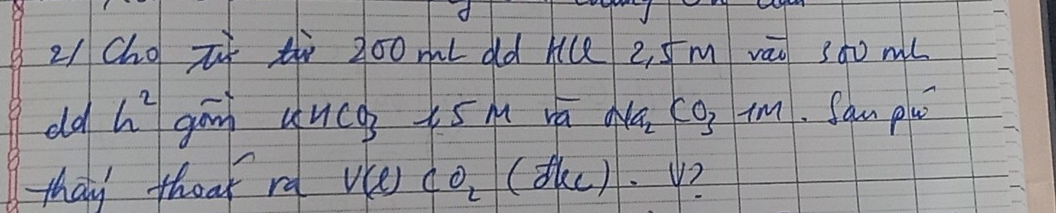 2/ Cho từ từ 200 ml dd HCl 2,5M vào 300 ml
dd h² gồm KHCO₃ 1,5M và Na₂CO₃ 1M. Sau pứ
thấy thoát ra V(l) CO₂ (đkc). V?